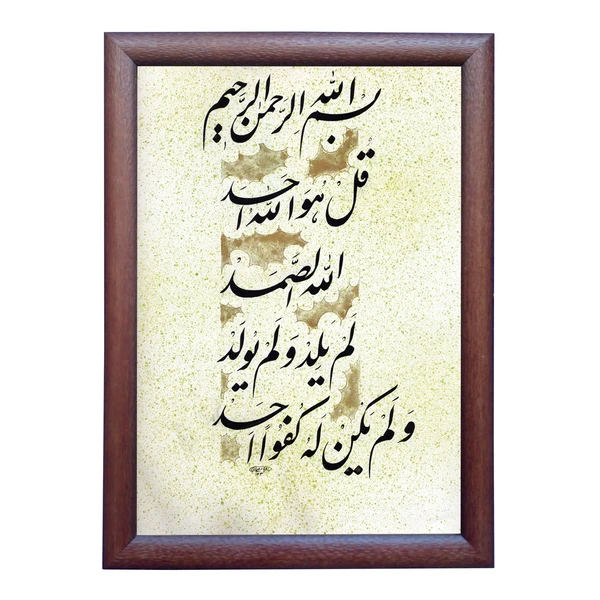 بسم الله الرحمن الرحیم
قُل هُوَ الله احد
الله الصَّمَد
لَم یَلِد وَ لَم یولَد
وَ لَم یَکُن لَهُ کُفُواً احد